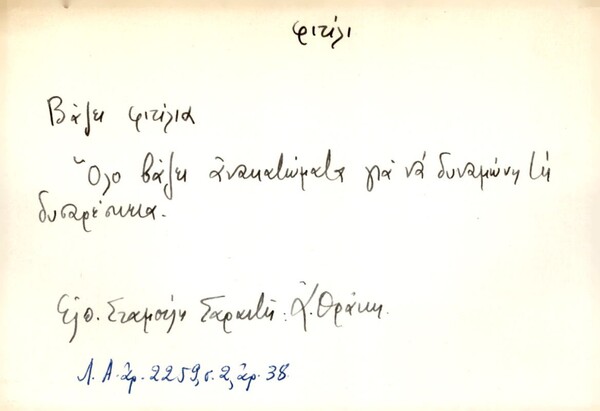 φιτίλι
Βάζει φιτίλια
Ὅλο βάζει ἀνακατώματα γιὰ νά δυναμώνη τή
δυσαρέσκεια.
Ἐλπ. Σταμούλη Σαραντῆ: Ἀ. Θράκη.
Λ.Α. ἀρ. 2259, σ. 2, ἀρ. 38